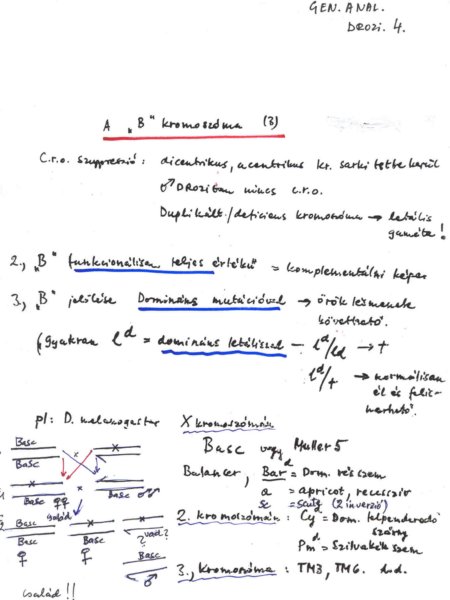 GEN. ANAL.
DROZI. 4.
A "B" kromoszóma (3)
C.r.o. szuppresszió: dicentrikus, acentrikus kr. sarki testbe kerül
♂ DROZIban nincs c.r.o.
Duplikált/deficiens kromoszóma → letális gaméta!
2., "B" funkcionálisan teljes értékű = komplementálni képes
3., "B" jelölése Domináns mutációval → öröklésmenete
követhető.
(gyakran l^d = domináns letálissal — l^d/l^d → †
l^d/+ → normálisan
él és felis-
merhető.
pl: D. melanogaster X kromoszómán
Basc vagy Muller 5
Balancer, Bar^d = Dom. rés szem
a = apricot, recesszív
sc = scute (2 inverzió)
2. kromoszómán: Cy = Dom. felpenderedő
szárny
Pm^d = Szilvakék szem
3., kromoszóma: TM3, TM6. s.d.
Basc × ×
Basc
Basc ♀♀ × Basc ♂♂
család
Basc × × ? vad?
Basc Basc Basc
♀ ♀ ♂
család!!